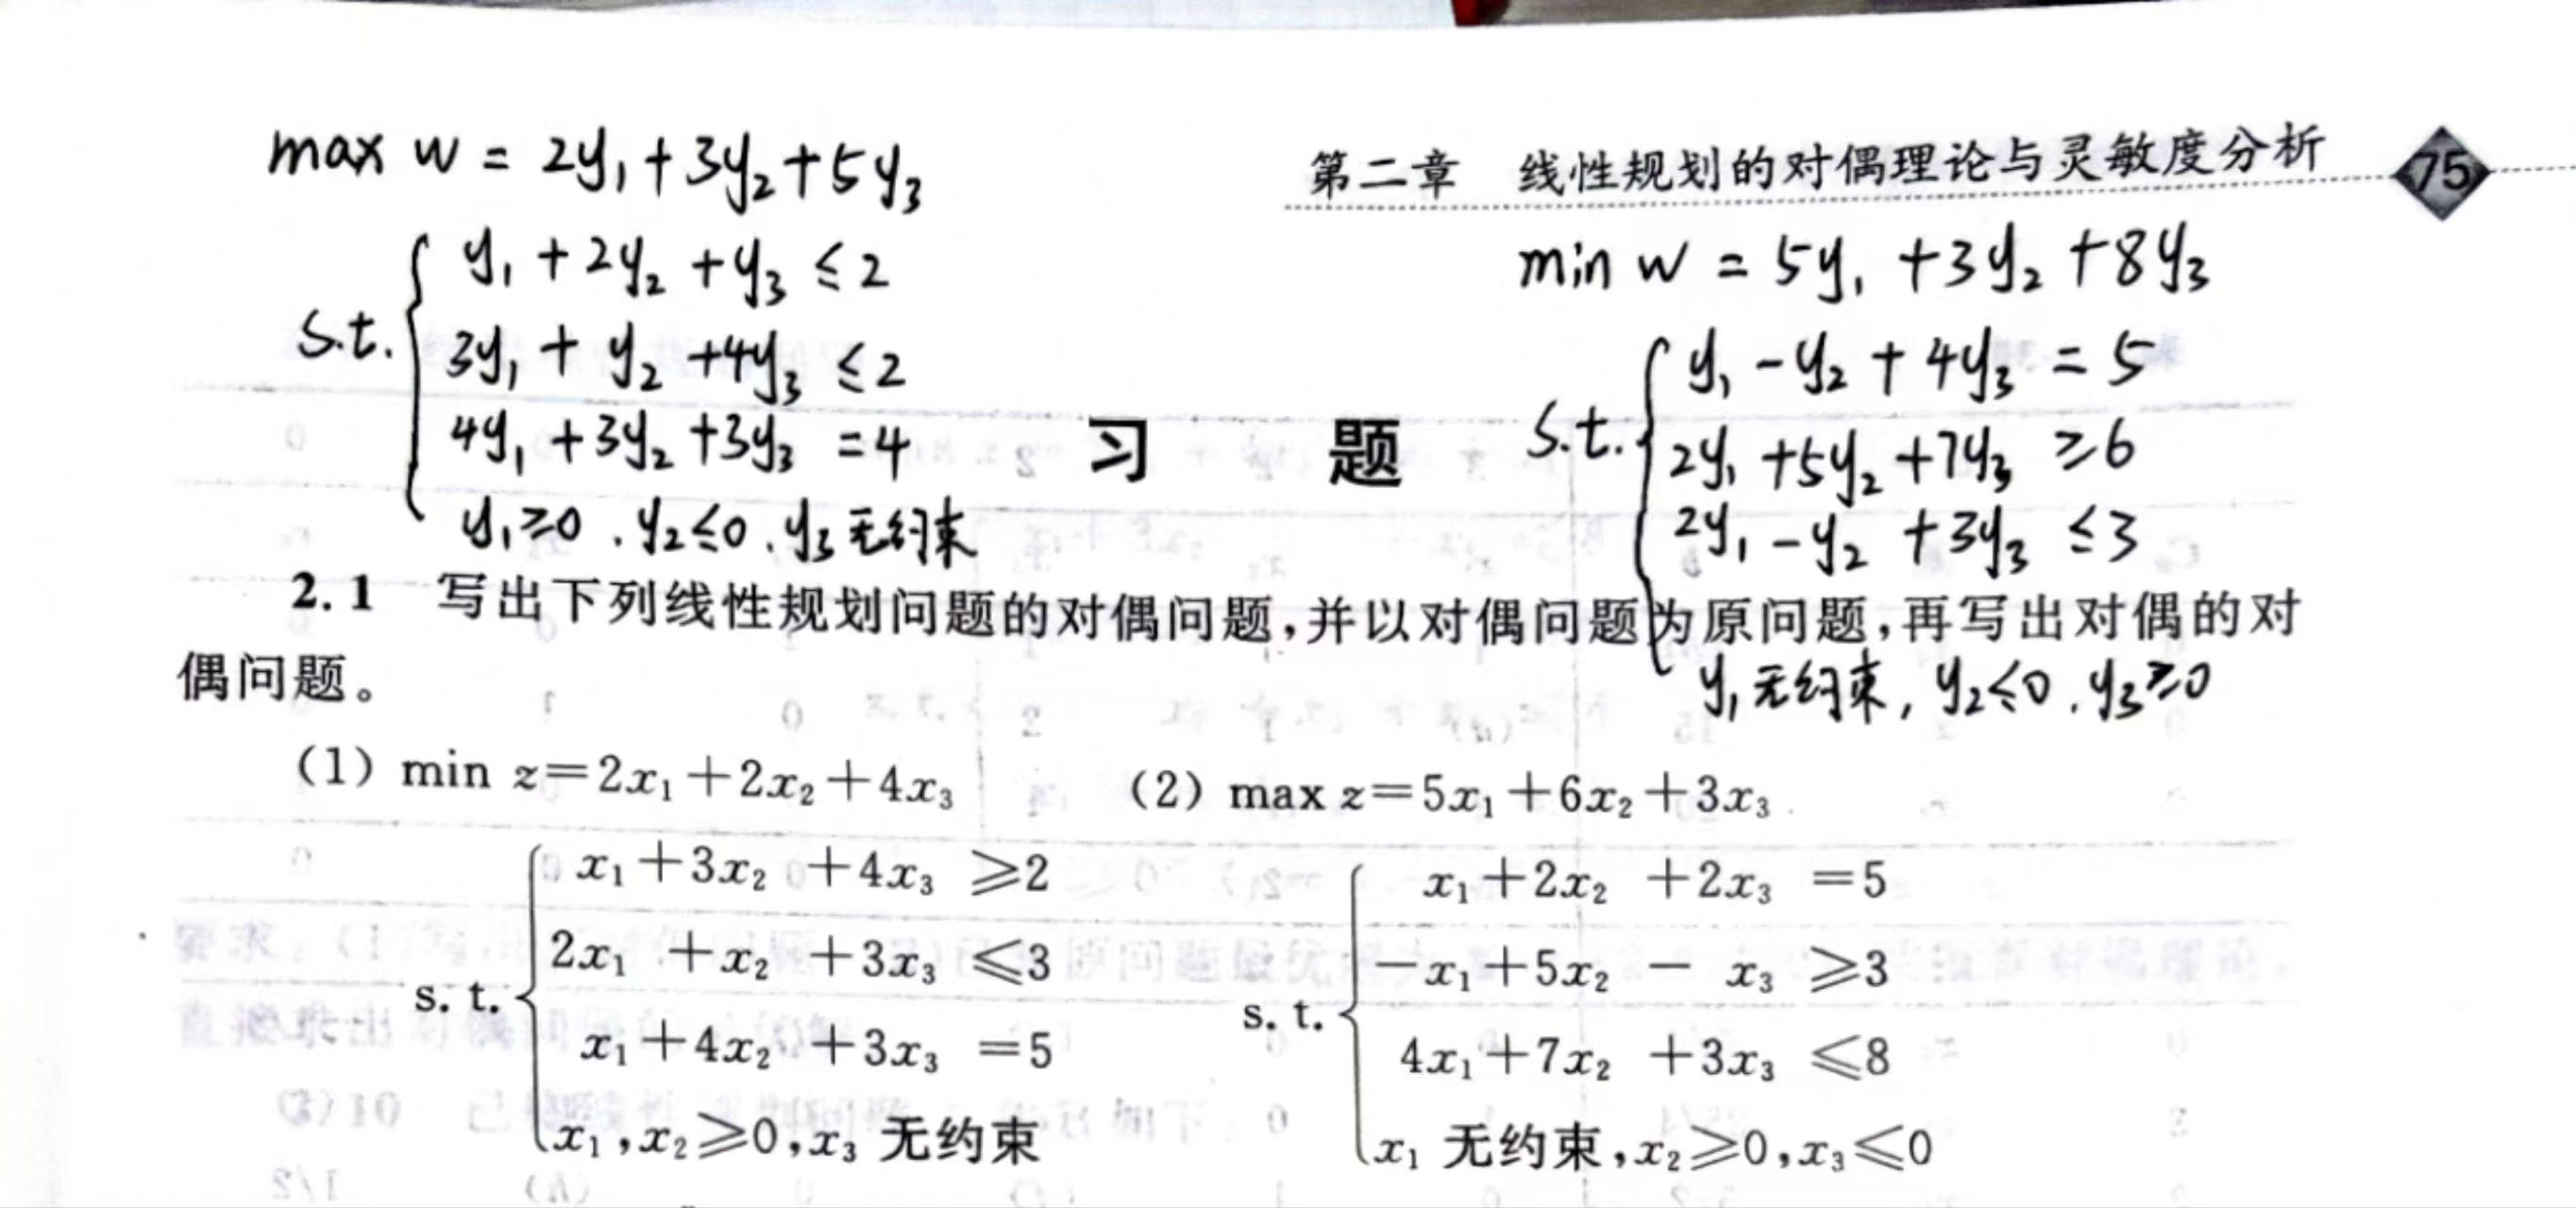 max w = 2y₁+3y₂+5y₃
s.t.
y₁+2y₂+y₃ ≤2
3y₁+y₂+4y₃ ≤2
4y₁+3y₂+3y₃ =4
y₁≥0.y₂≤0.y₃无约束
第二章 线性规划的对偶理论与灵敏度分析 75
min w = 5y₁+3y₂+8y₃
s.t.
y₁-y₂+4y₃ =5
2y₁+5y₂+7y₃ ≥6
2y₁-y₂+3y₃ ≤3
y₁无约束, y₂≤0.y₃≥0
习 题
2.1 写出下列线性规划问题的对偶问题,并以对偶问题为原问题,再写出对偶的对
偶问题。
(1) min z=2x₁+2x₂+4x₃
s. t.
x₁+3x₂+4x₃ ⩾2
2x₁+x₂+3x₃ ⩽3
x₁+4x₂+3x₃ =5
x₁,x₂⩾0,x₃ 无约束
(2) max z=5x₁+6x₂+3x₃
s. t.
x₁+2x₂+2x₃ =5
-x₁+5x₂-x₃ ⩾3
4x₁+7x₂+3x₃ ⩽8
x₁ 无约束,x₂⩾0,x₃⩽0